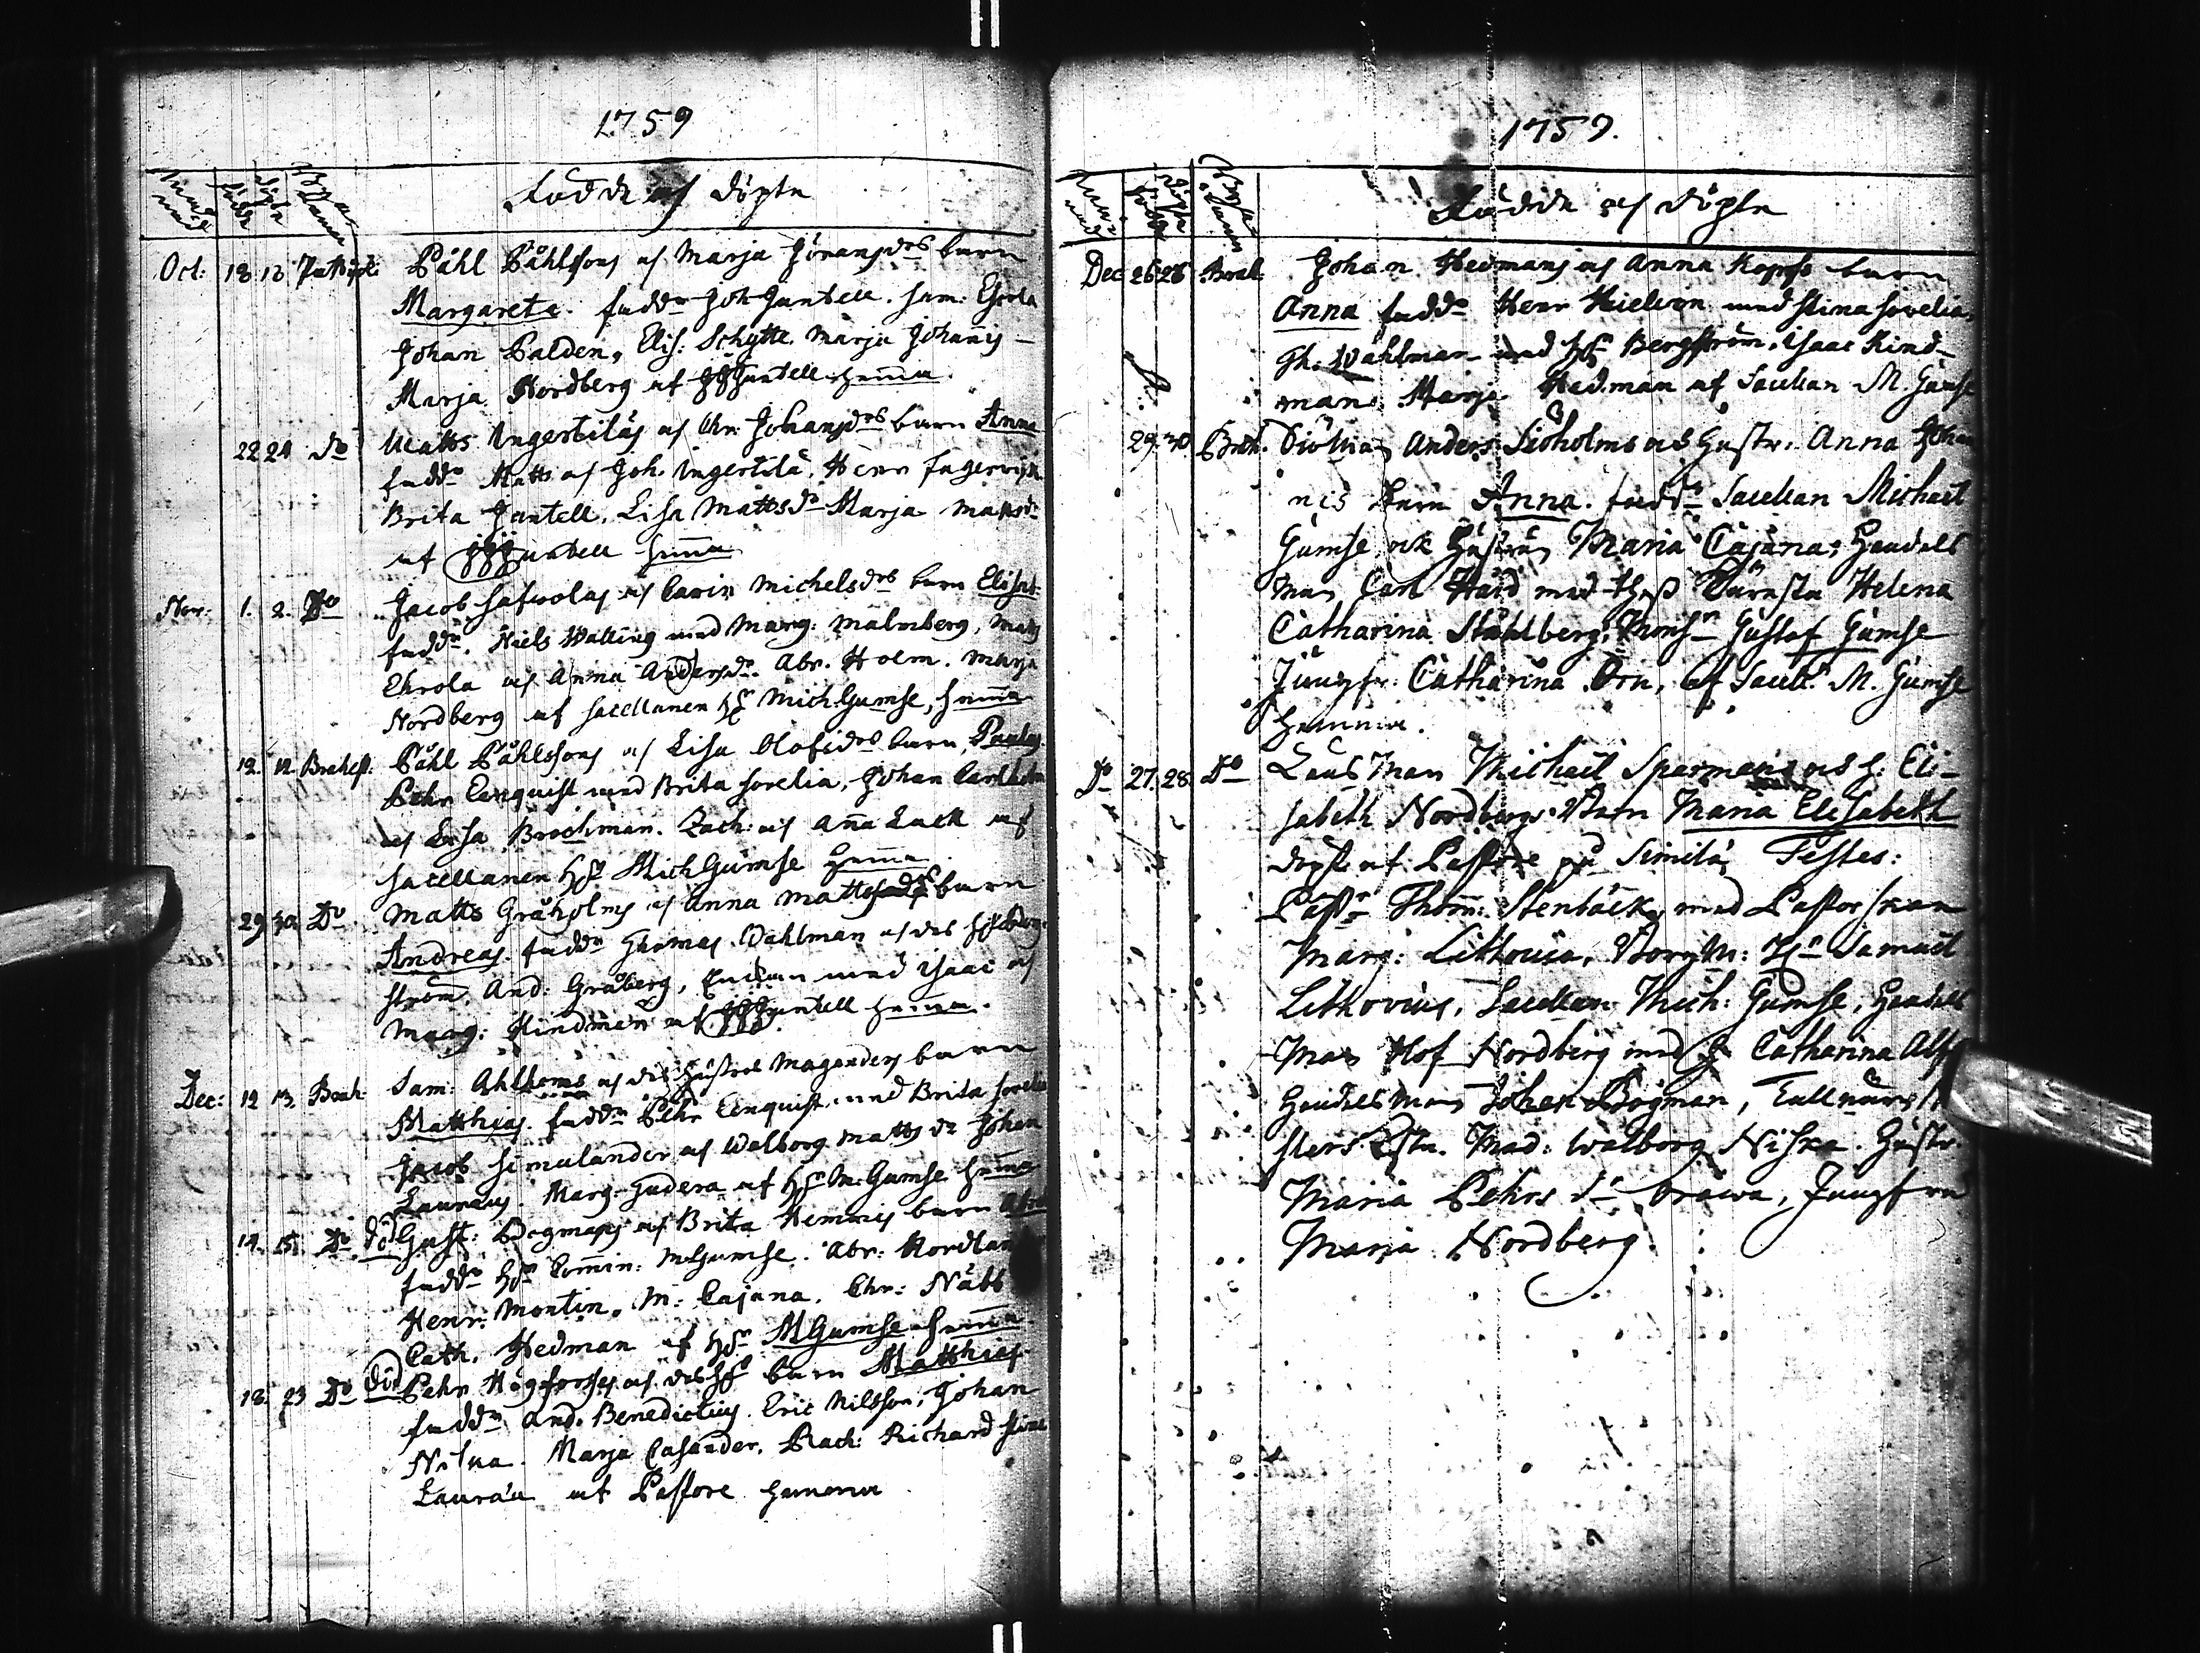 1759
Födde och döpte
Oct: 18 18 Pattijoki Påhl Påhlsons och Marja Göransdrs barn
Margareta. fadd: Joh Juntell. Sam: Ehrola
Johan Palden, Elis: Schytte. Marja Johannis
Marja Nordberg af JJJuntell hemma.
22 24 do Matts Ingertiläs och Chr: Johansdrs barn Anna
fadd: Matts och Joh. Ingertilä, Henr Fagervijk
Brita Juntell. Lisa Mattsdr Marja Matsdr
af JJJuntell hemma
Nov: 1. 2. Do Jacob och Carin Michelsdrs barn Elisab:
fadd: Niels Walling med Marg: Malmberg, Matts
Ehrola och Anna Andersdr. Abr. Holm. Marja
Nordberg af Sacellanen Hr Mich Gumse, hemma
12. 12 Brahest: Påhl Påhlssons och Lisa Olofsdrs barn, Paulus
Pehr Enquist med Brita Forelia, Johan Carlholm
och Lisa Brockman. Zach: och Anna Lack af
Sacellanen Hr Mich Gumse hemma
29 30. Do Matts Gråholms och Anna Mattsdrs barn
Andreas. fadd: Thomas Wahlman och des H: Berg-
ström. And: Gråberg, med Isaac och
Marg: Kindman af JJJuntell hemma.
Dec: 12 13. Brah: Sam: Ahlholms och des Hustrus Magenders barn
Matthias. fadd: Pehr Enquist med Brita Forelia
Jacob Simulander och Walborg Matts dr Johan
Lauraus. Marg: Judera af Hr M: Gumse hemma
14. 15. Do död Gust: Bogmans och Brita Hemmings barn Abr:
fadd: Hr Comin: M Gumse. Abr: Nordlan
Henr: Montin. M: Cajana. Chr: Näbb
Cath. Hedman af Hr M Gumse hemma
18. 23 Do död Pehr Högforss och des H: barn Matthias
fadd: And. Benedictius. Eric Nilsson, Johan
Niska. Marja Casander. Rach: Richard Stina
Laurä'a af Pastore hemma
1759.
Födde och döpte
Dec 26 28 Brah Johan Hedmans och Anna Kopsas barn
Anna fadd: Henr Hielvin med Stina Forelia,
Th: Wahlman med H: Bergström, Isaac Kind-
man. Marja Hedman af Sacellan M. Gumse
29. 30 Brah. Anders Sidholms och Hustr: Anna Johan
nis barn Anna. fadd: Sacellan Michael
Gumse, och Hustrun Maria Cajana, Handels
man Carl Hård med thess Kärasta Helena
Catharina Ståhlberg, Monsr Gustaf Gumse
Jungfr: Catharina Orn, af Sacell: M. Gumse
hemma.
Do 27. 28. Do Länsman Michael Sparmans och H: Eli-
sabeth Nordbergs Barn Maria Elisabeth
döpt af Pastore på Similä, Testes:
Past:r Thom: Stenbäck, med Pastorskan
Marg: Lithovia, Borgm: Hr Samuel
Lithovius, Sacellan: Mich: Gumse, Handels
Man Olof Nordberg med H: Catharina Alf
Handelsman Johan Bogman, Tullnärs
sters Mad: Walborg Niska. Hustr:
Maria Pehrs dr Orawa, Jungfrn
Maria Nordberg.